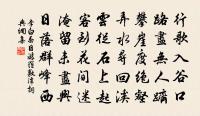 行歌入谷口
路盡無人躋
攀崖度絕壑
弄水尋迴溪
雲從石上起
客到花間迷
淹留未盡興
日落群峰西
李白春日遊羅敷潭詩詞
典網集